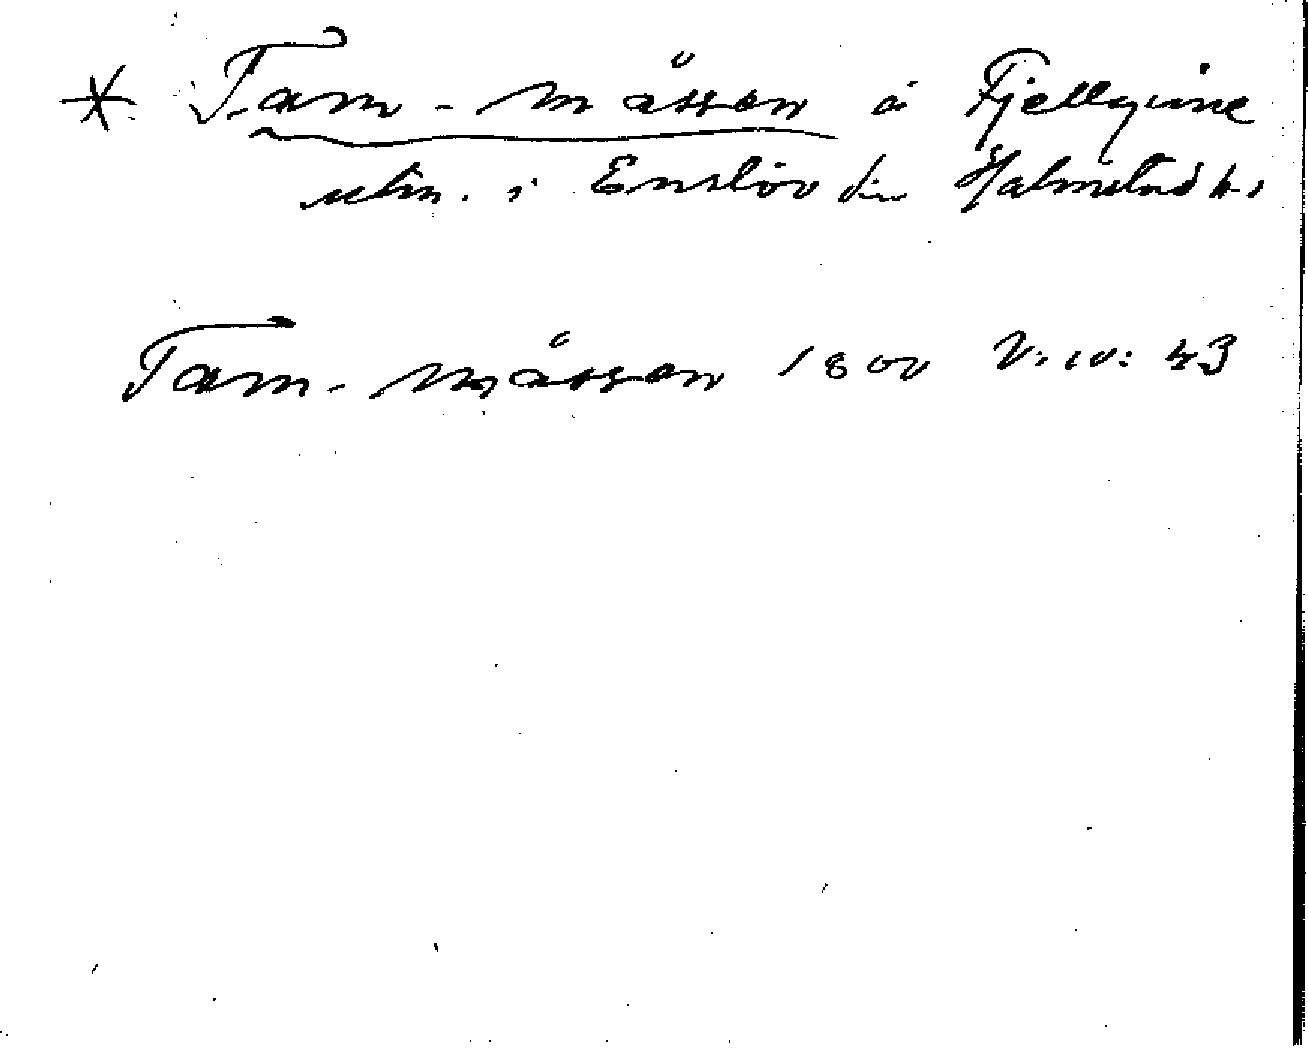 * Tam-måssen å Fjellgine
utm. i Enslöv sn Halmstad h.
Tam-måssen 1800 V: 10: 43